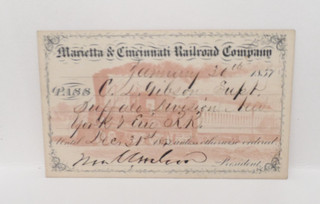 Marietta & Cincinnati Railroad Company
January 20th 1857
PASS C. D. Gibson Supt.
Buffalo Division New
York & Erie R.R.
Until Dec. 31st unless otherwise ordered
President.